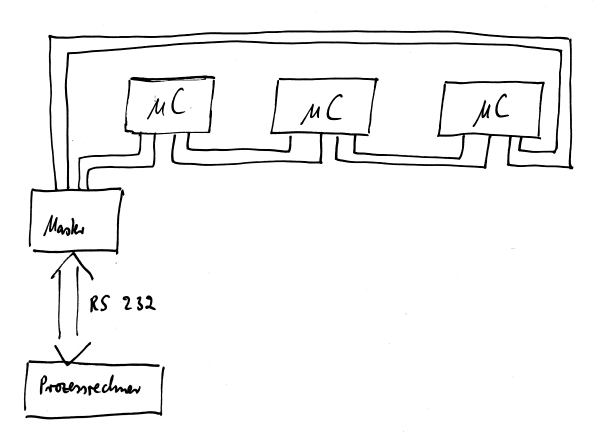 µC
µC
µC
Master
RS 232
Prozessrechner